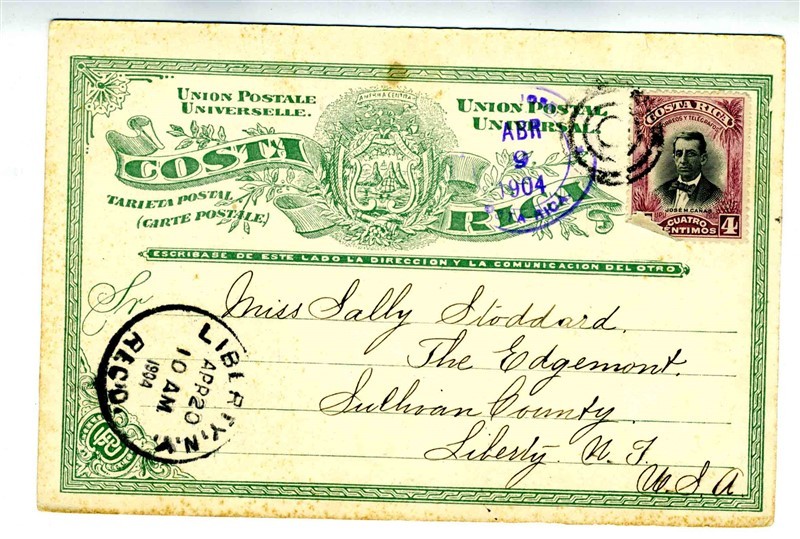 UNION POSTALE
UNIVERSELLE.
AMERICA CENTRAL
UNION POSTAL
UNIVERSAL
COSTA RICA
TARJETA POSTAL
(CARTE POSTALE)
ABR
9
1904
RICA
COSTA RICA
CORREOS Y TELEGRAFOS
JOSÉ M. CAÑAS
CUATRO
CENTIMOS
4
ESCRIBASE DE ESTE LADO LA DIRECCION Y LA COMUNICACION DEL OTRO
Sr
Miss Sally Stoddard.
The Edgemont.
Sullivan County.
Liberty. N. Y.
U. S. A
LIBERTY, N.Y.
APR 20
10 AM
1904
REC'D.